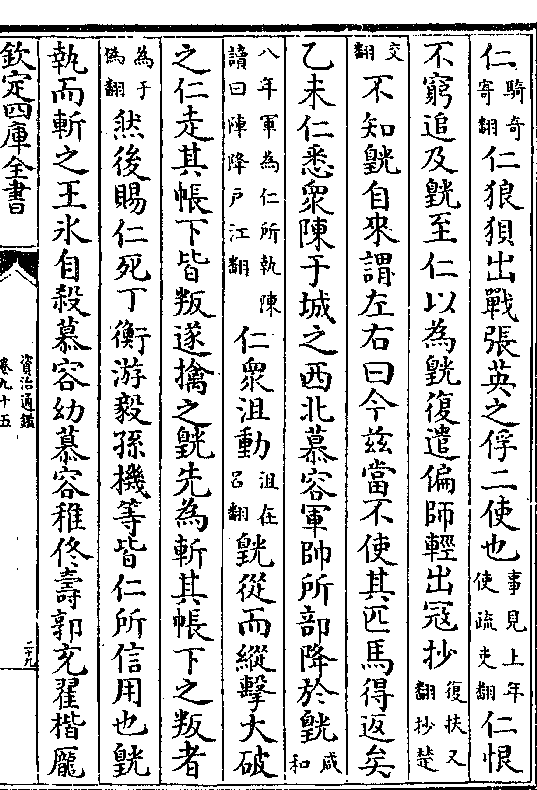 仁騎奇寄翻仁狼狽出戰張英之俘二使也事見上年使疏吏翻仁恨
不窮追及皝至仁以為皝復遣偏師輕出冦抄復扶又翻抄楚
交翻不知皝自來謂左右曰今兹當不使其匹馬得返矣
乙未仁悉衆陳于城之西北慕容軍帥所部降於皝咸和
八年軍為仁所執陳讀曰陣降户江翻仁衆沮動沮在吕翻皝從而縱擊大破
之仁走其帳下皆叛遂擒之皝先為斬其帳下之叛者
為于偽翻然後賜仁死丁衡游毅孫機等皆仁所信用也皝
執而斬之王氷自殺慕容幼慕容稚佟壽郭充翟楷龎
欽定四庫全書
資治通鑑
卷九十五
二十九